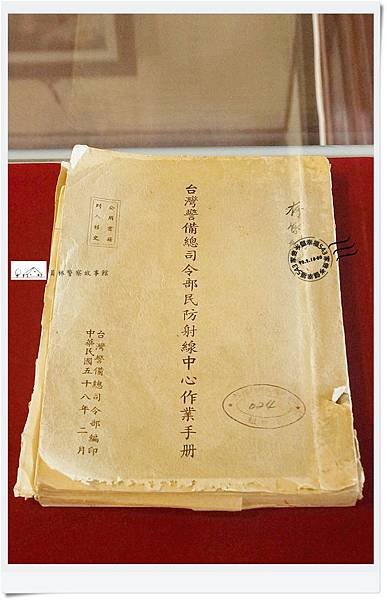 台灣警備總司令部民防射線中心作業手册
公用書籍
列入移交
台灣警備總司令部編印
中華民國五十八年二月
員林警察故事館
024